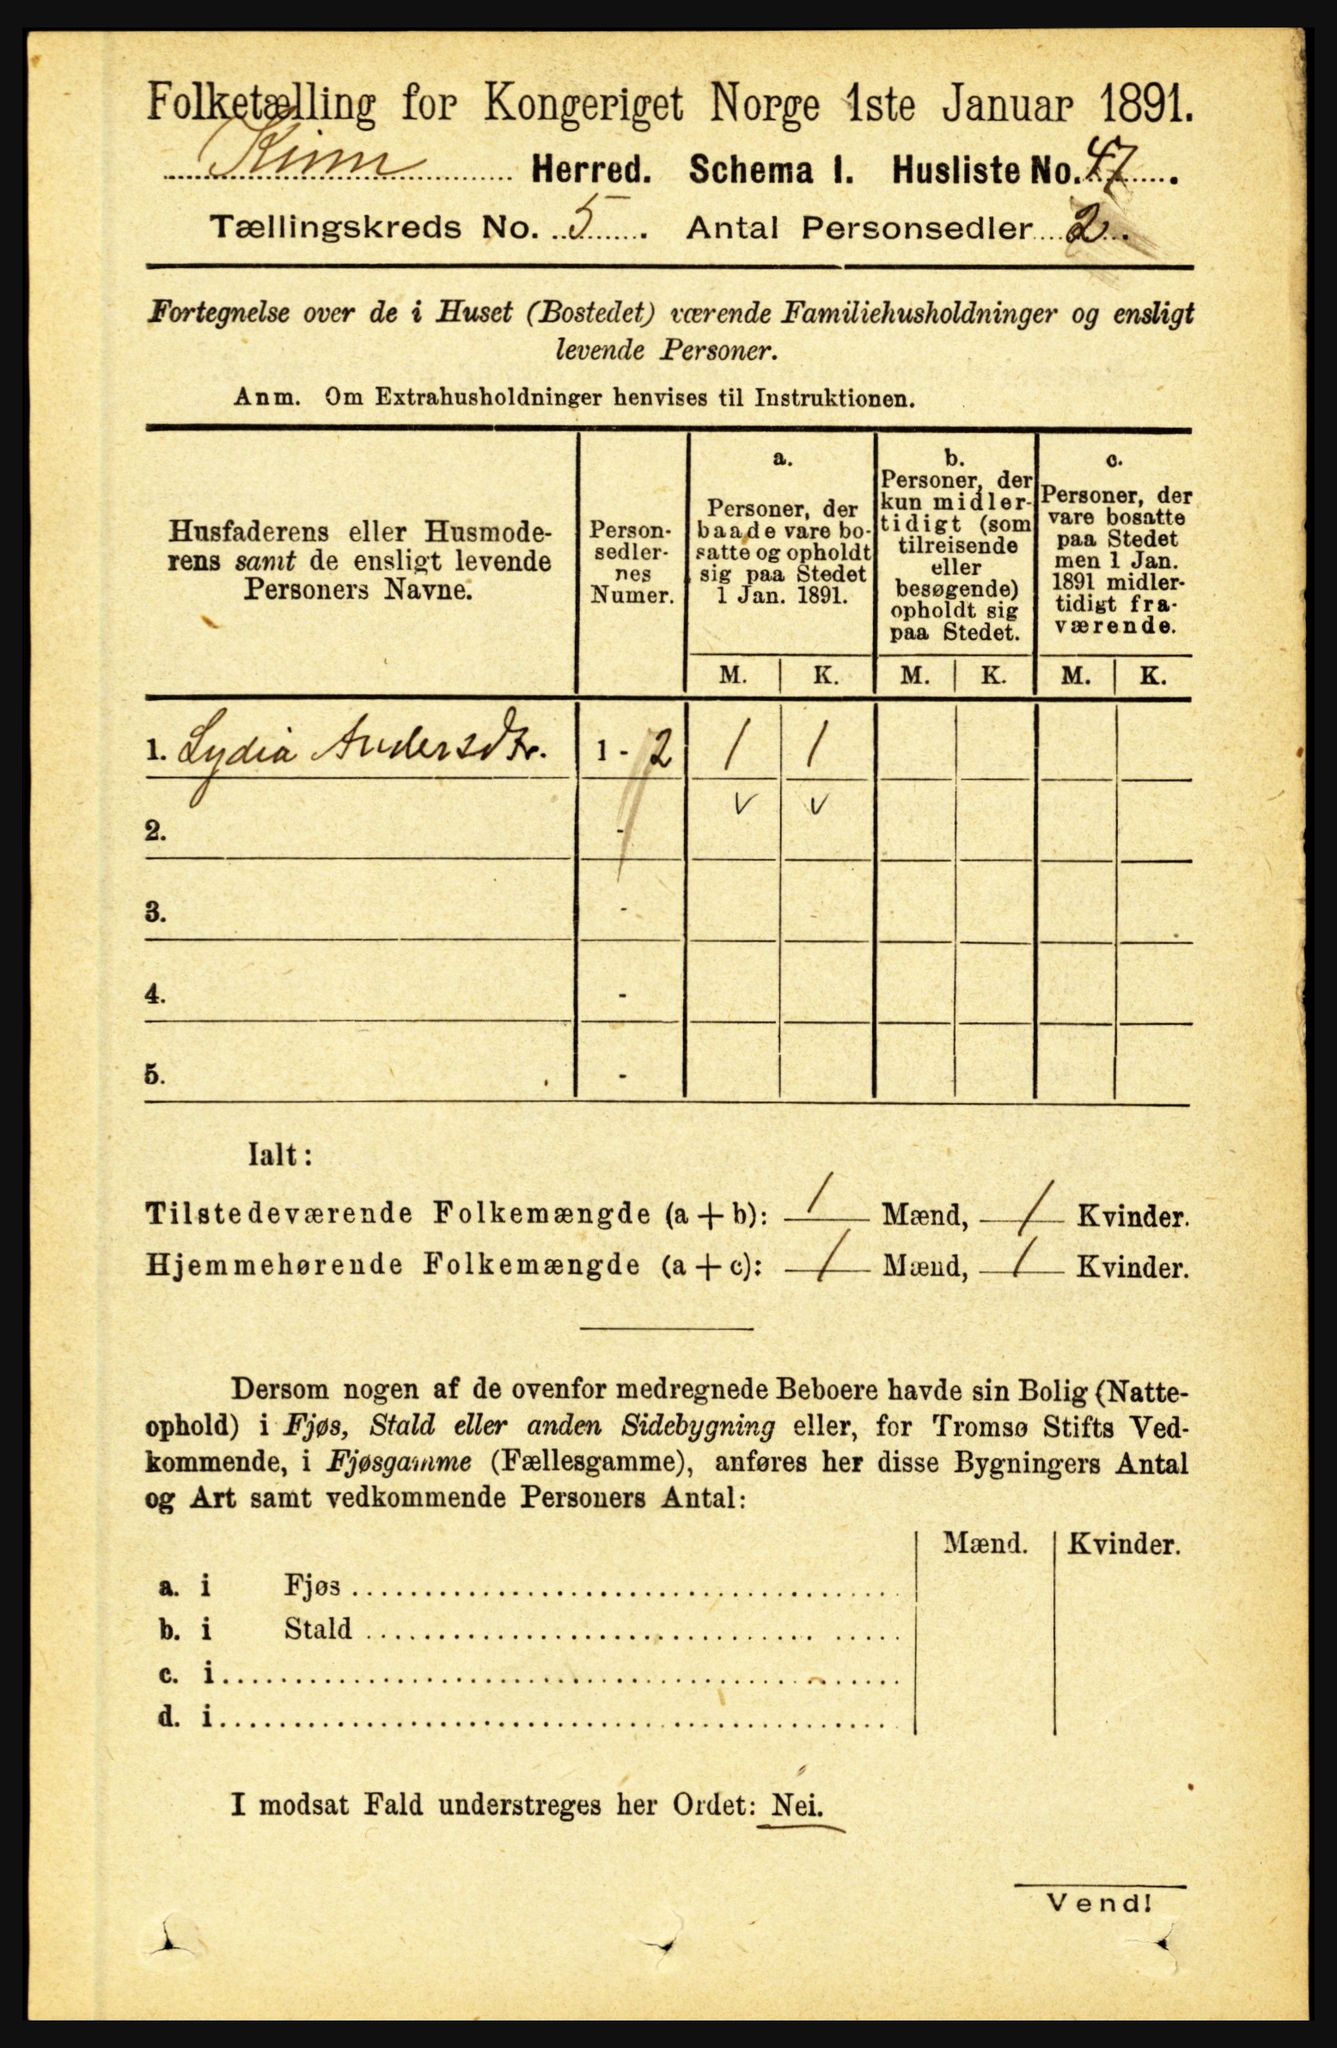 Folketælling for Kongeriget Norge 1ste Januar 1891.
Kinn Herred. Schema 1. Husliste No. 47.
Tællingskreds No. 5. Antal Personsedler 2.
Fortegnelse over de i Huset (Bostedet) værende Familiehusholdninger og ensligt
levende Personer.
Anm. Om Extrahusholdninger henvises til Instruktionen.
Husfaderens eller Husmode-
rens samt de ensligt levende
Personers Navne.
Person-
sedler-
nes
Numer.
a.
Personer, der
baade vare bo-
satte og opholdt
sig paa Stedet
1 Jan. 1891.
b.
Personer, der
kun midler-
tidigt (som
tilreisende
eller
besøgende)
opholdt sig
paa Stedet.
c.
Personer, der
vare bosatte
paa Stedet
men 1 Jan.
1891 midler-
tidigt fra-
værende.
M. K. M. K. M. K.
1. Lydia Andersdtr. 1 - 2 1 1
v v
2. -
3. -
4. -
5. -
Ialt:
Tilstedeværende Folkemængde (a + b): 1 Mænd, 1 Kvinder.
Hjemmehørende Folkemængde (a + c): 1 Mænd, 1 Kvinder.
Dersom nogen af de ovenfor medregnede Beboere havde sin Bolig (Natte-
ophold) i Fjøs, Stald eller anden Sidebygning eller, for Tromsø Stifts Ved-
kommende, i Fjøsgamme (Fællesgamme), anføres her disse Bygningers Antal
og Art samt vedkommende Personers Antal:
Mænd. Kvinder.
a. i Fjøs
b. i Stald
c. i
d. i
I modsat Fald understreges her Ordet: Nei.
Vend!